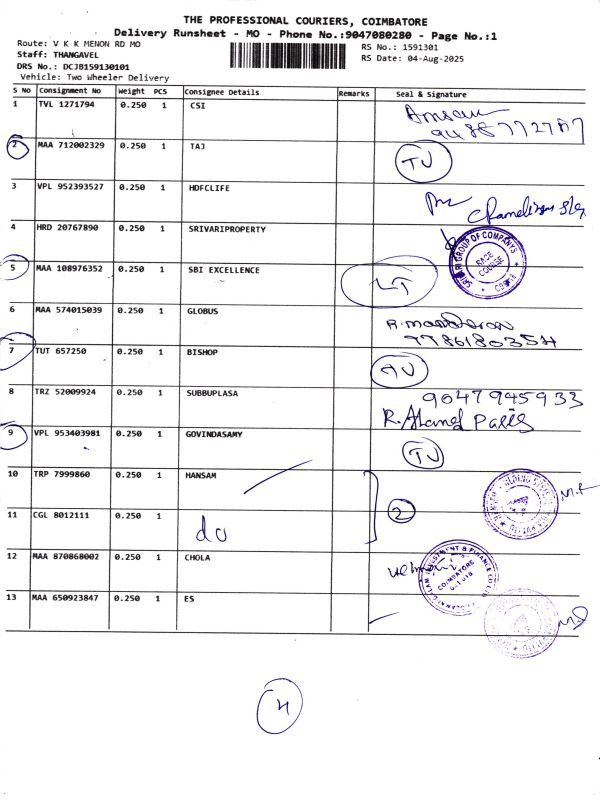 THE PROFESSIONAL COURIERS, COIMBATORE
Delivery Runsheet - MO - Phone No.:9047080280 - Page No.:1
Route: V K K MENON RD MO
RS No.: 1591301
Staff: THANGAVEL
RS Date: 04-Aug-2025
DRS No.: DCJB159130101
Vehicle: Two Wheeler Delivery
S No Consignment No Weight PCS Consignee Details Remarks Seal & Signature
1 TVL 1271794 0.250 1 CSI
2 MAA 712002329 0.250 1 TAJ
3 VPL 952393527 0.250 1 HDFCLIFE
4 HRD 20767890 0.250 1 SRIVARIPROPERTY
SRIVARI GROUP OF COMPANIES
RACE COURSE
5 MAA 108976352 0.250 1 SBI EXCELLENCE
6 MAA 574015039 0.250 1 GLOBUS
7 TUT 657250 0.250 1 BISHOP
8 TRZ 52009924 0.250 1 SUBBUPLASA 9047945933
9 VPL 953403981 0.250 1 GOVINDASAMY
10 TRP 7999860 0.250 1 HANSAM
2
11 CGL 8012111 0.250 1 do
12 MAA 870868002 0.250 1 CHOLA
COIMBATORE
13 MAA 650923847 0.250 1 ES
4